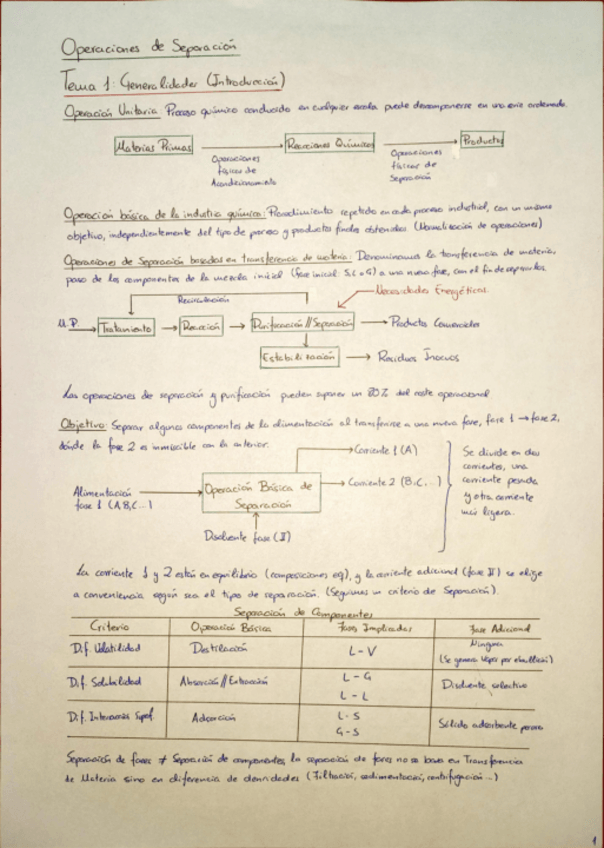 Operaciones de Separación
Tema 1: Generalidades (Introducción)
Operación Unitaria: Proceso químico conducido en cualquier escala puede descomponerse en una serie ordenada.
Materias Primas
Reacciones Químicas
Productos
Operaciones físicas de Acondicionamiento
Operaciones físicas de Separación
Operación básica de la industria química: Procedimiento repetido en cada proceso industrial, con un mismo
objetivo, independientemente del tipo de proceso y productos finales obtenidos. (Normalización de operaciones)
Operaciones de Separación basadas en transferencia de materia: Denominamos la transferencia de materia,
paso de los componentes de la mezcla inicial (fase inicial: S, L o G) a una nueva fase, con el fin de separarlos.
Necesidades Energéticas.
Recirculación
M.P.
Tratamiento
Reacción
Purificación//Separación
Productos Comerciales
Estabilización
Residuos Inocuos
Las operaciones de separación y purificación pueden suponer un 80% del coste operacional
Objetivo: Separar algunos componentes de la alimentación al transferirse a una nueva fase, fase 1 → fase 2,
dónde la fase 2 es inmiscible con la anterior.
Corriente 1 (A)
Alimentación
fase 1 (A,B,C...)
Operación Básica de
Separación
Corriente 2 (B,C,...)
Disolvente fase (II)
Se divide en dos
corrientes, una
corriente pesada
y otra corriente
más ligera.
La corriente 1 y 2 están en equilibrio (composiciones eq), y la corriente adicional (fase II) se elige
a conveniencia según sea el tipo de separación. (Seguimos un criterio de Separación).
Separación de Componentes
Criterio Operación Básica Fases Implicadas Fase Adicional
Dif. Volatilidad Destilación L-V Ninguna
(Se genera vapor por ebullición)
Dif. Solubilidad Absorción//Extracción L-G
L-L
Disolvente selectivo
Dif. Interacción Superf. Adsorción L-S
G-S
Sólido adsorbente poroso
Separación de fases ≠ Separación de componentes, la separación de fases no se basa en Transferencia
de Materia sino en diferencia de densidades (Filtración, sedimentación, centrifugación...)
1